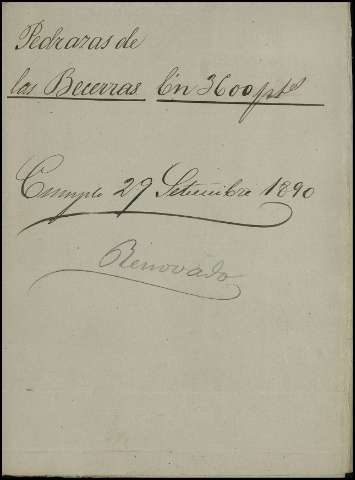 Pedrazas de
las Becerras En 3600 pts
Cumple 29 Setiembre 1890
Renovado